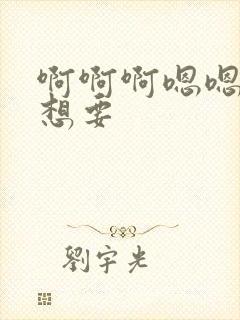 啊啊啊嗯嗯
想要
劉宇光